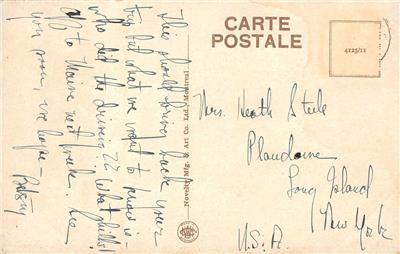 CARTE
POSTALE
4225/11
This should bring back your
trip but what we want to know is -
who did the driving?? What hills!
Off to Maine next week. See
you soon, we hope -
Betsy
Novelty Mfg. & Art Co. Ltd., Montreal
Mrs. Heath Steele
Plandome
Long Island
New York
U.S.A.